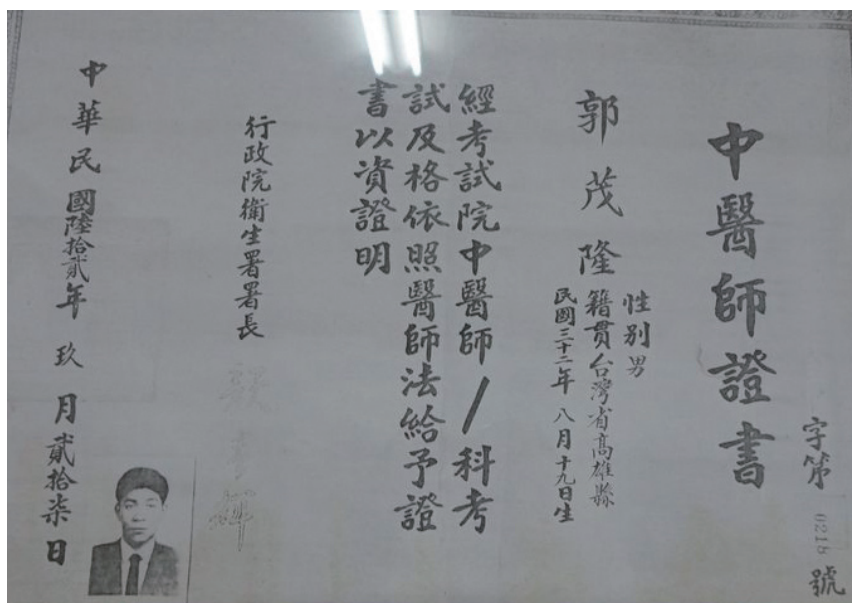 中醫師證書
字第 0215 號
郭茂隆
性別男
籍貫台灣省高雄縣
民國三十二年八月十九日生
經考試院中醫師/科考
試及格依照醫師法給予證
書以資證明
行政院衛生署署長
中華民國陸拾貳年玖月貳拾柒日